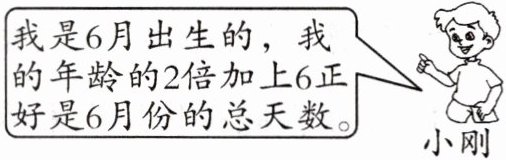 我是6月出生的，我
的年龄的2倍加上6正
好是6月份的总天数。
小刚